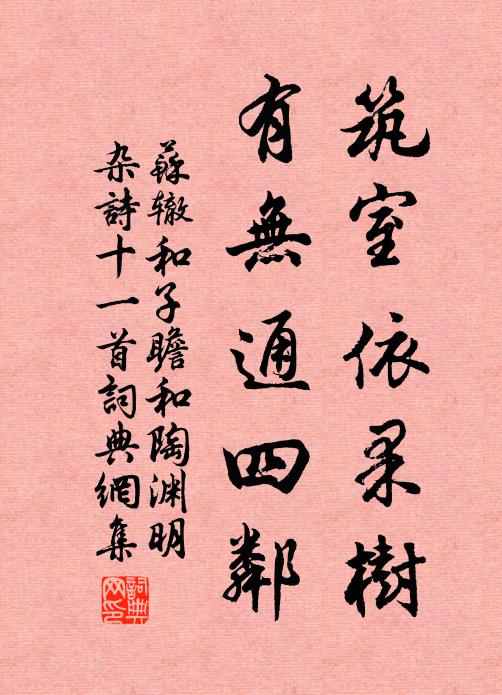 筑室依果樹
有無通四鄰
蘇辙和子瞻和陶渊明
杂詩十一首詞典網集
詞典网印